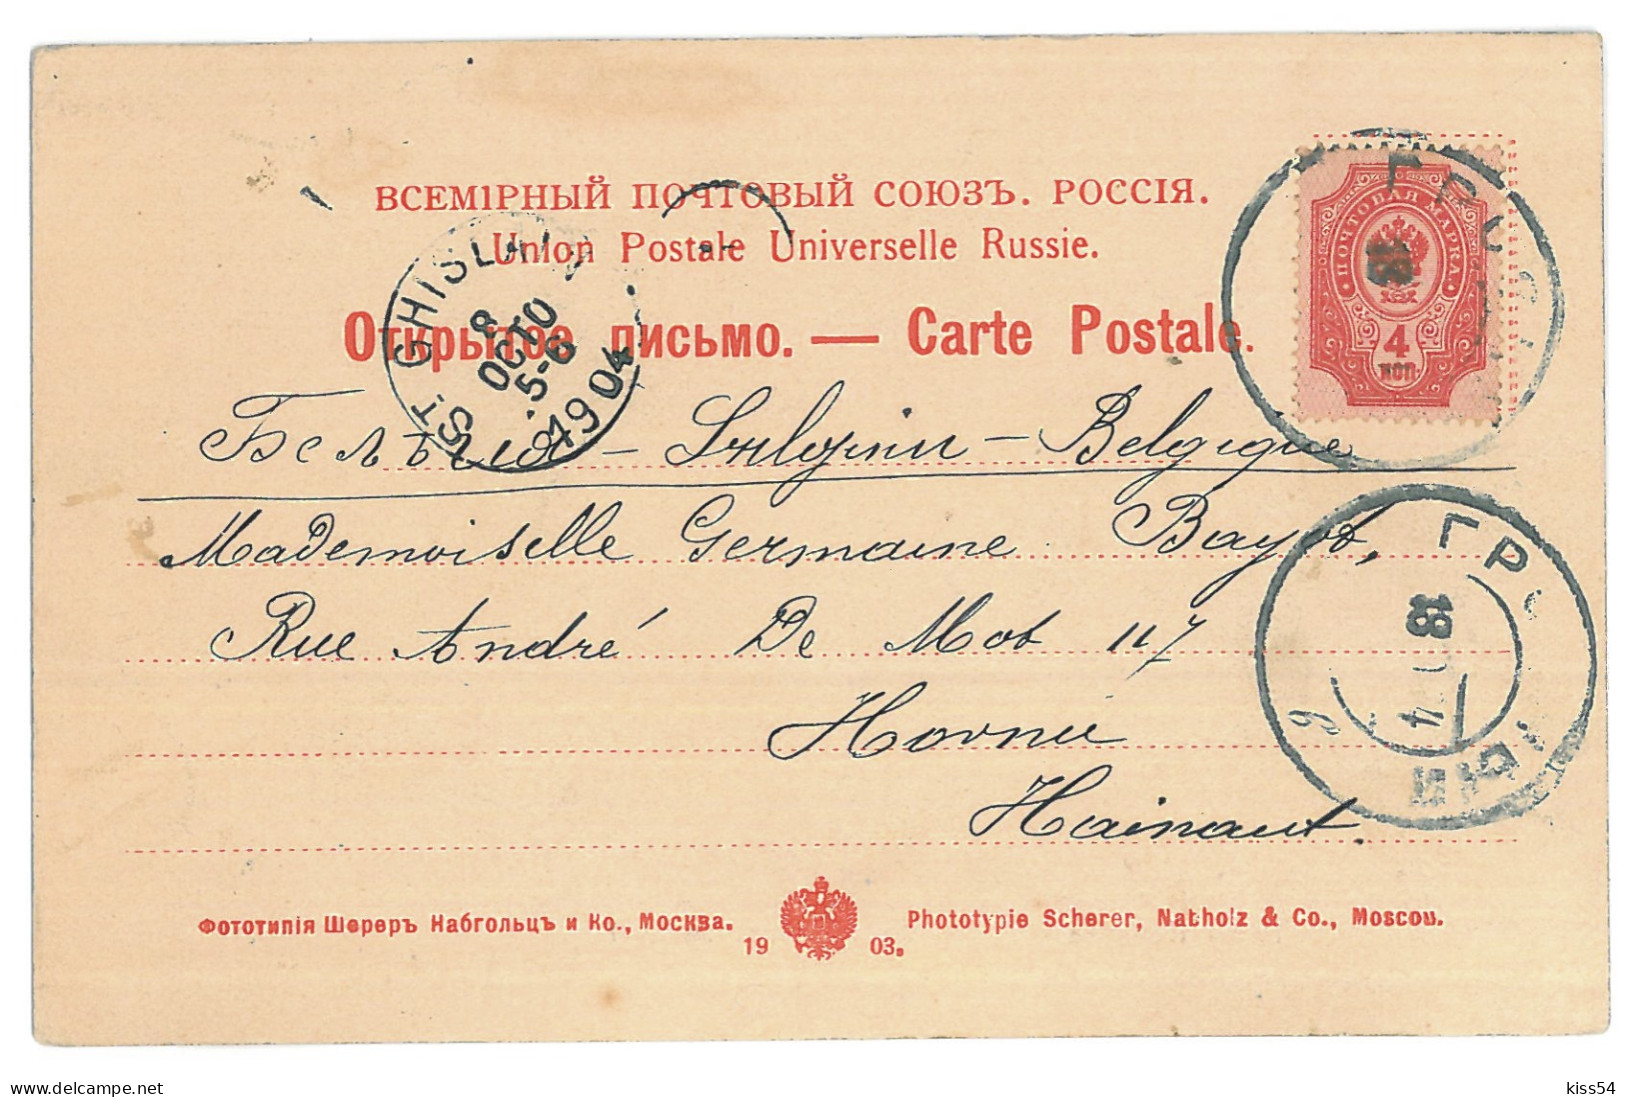 ВСЕМІРНЫЙ ПОЧТОВЫЙ СОЮЗЪ. РОССІЯ.
Union Postale Universelle Russie.
Открытое письмо. — Carte Postale.
ПОЧТОВАЯ МАРКА
4
КОП.
18
ST. GHISLAIN
8
OCTO
5-6
1904
Бельгія — Belgique
Mademoiselle Germaine Bayot,
Rue André De Mot 117
Hornu
Hainaut
ГРО
18
4
Фототипія Шереръ Набгольцъ и Ко., Москва.
1903.
Phototypie Scherer, Nabholz & Co., Moscou.
delcampe.net
kiss54